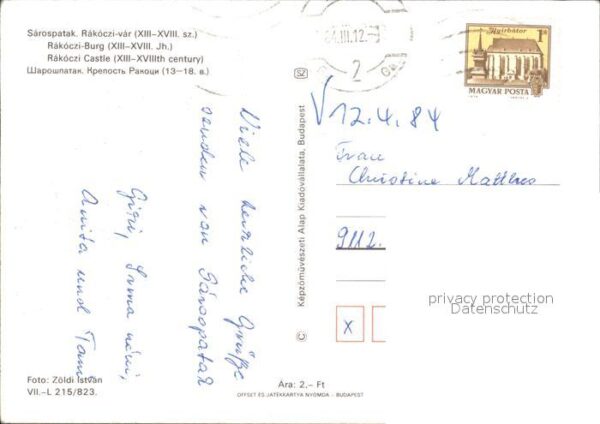 Sárospatak. Rákóczi-vár (XIII–XVIII. sz.)
Rákóczi-Burg (XIII–XVIII. Jh.)
Rákóczi Castle (XIII–XVIIIth century)
Шарошпатак. Крепость Ракоци (13—18. в.)
Viele herzliche Grüße
senden von Sárospatak
Gizi, Irma néni,
Anita und
Foto: Zöldi István
VII.–L 215/823.
SZ
© Képzőművészeti Alap Kiadóvállalata, Budapest
Ára: 2,– Ft
OFFSET ÉS JÁTÉKKÁRTYA NYOMDA – BUDAPEST
84.III.12.
2
Nyírbátor
1 Ft
MAGYAR POSTA
V 12.4.84
Frau
Christine Matthes
9112.
X
privacy protection
Datenschutz